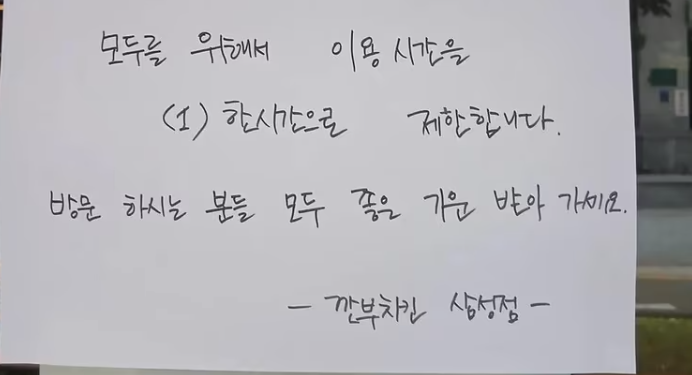 모두를 위해서 이용 시간을
(1) 한시간으로 제한합니다.
방문 하시는 분들 모두 좋은 기운 받아 가세요.
- 깐부치킨 삼성점 -